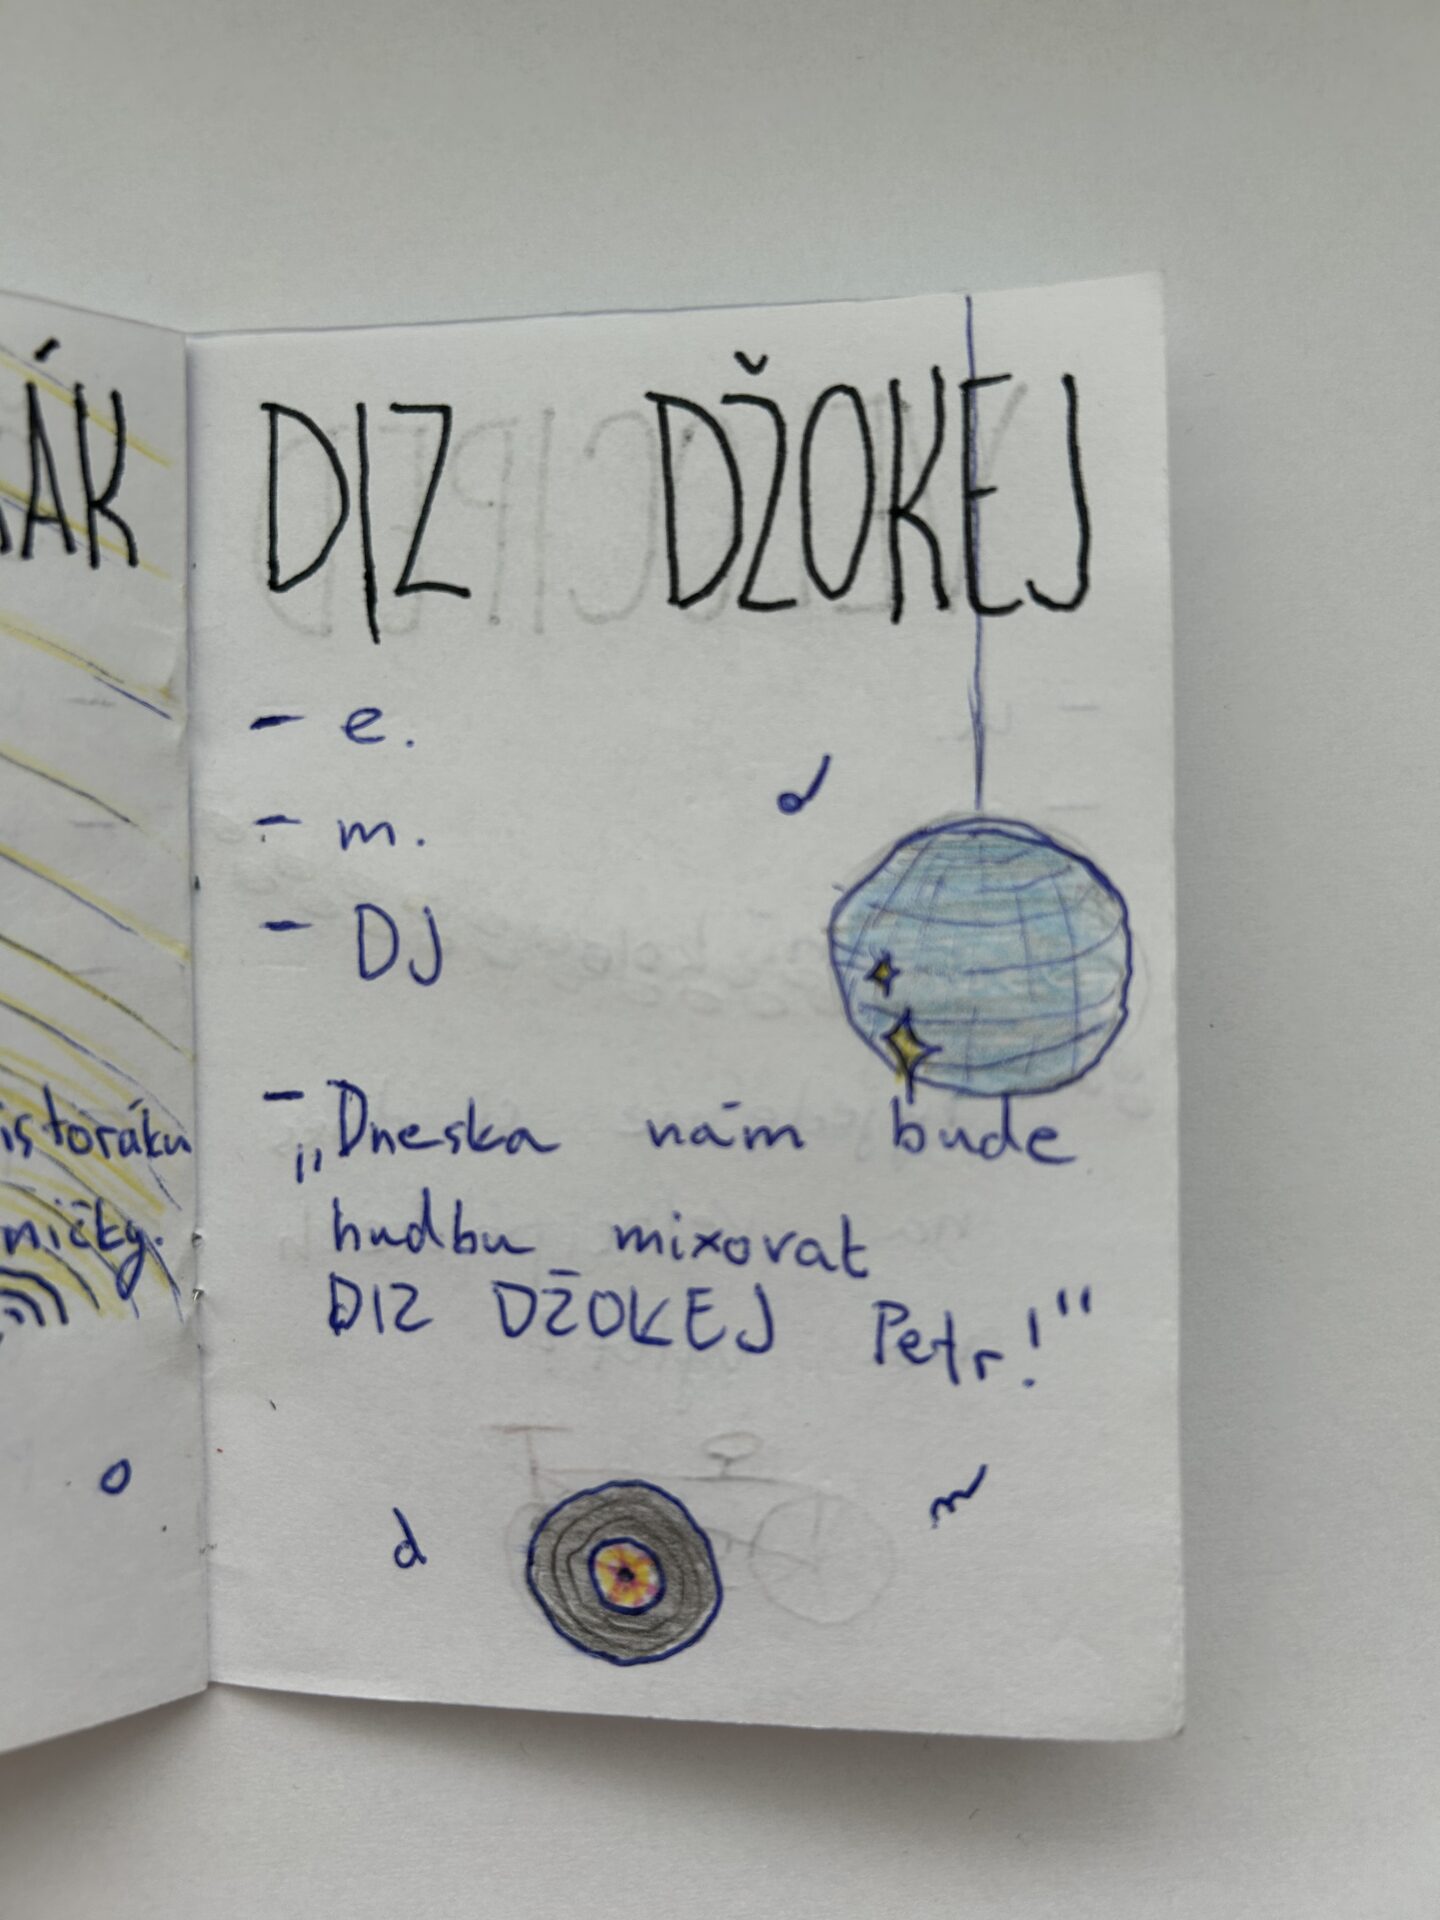 ÁK
istoráku
ničky.
DIZ DŽOKEJ
- e.
- m.
- DJ
- „Dneska nám bude
hudbu mixovat
DIZ DŽOKEJ Petr!“